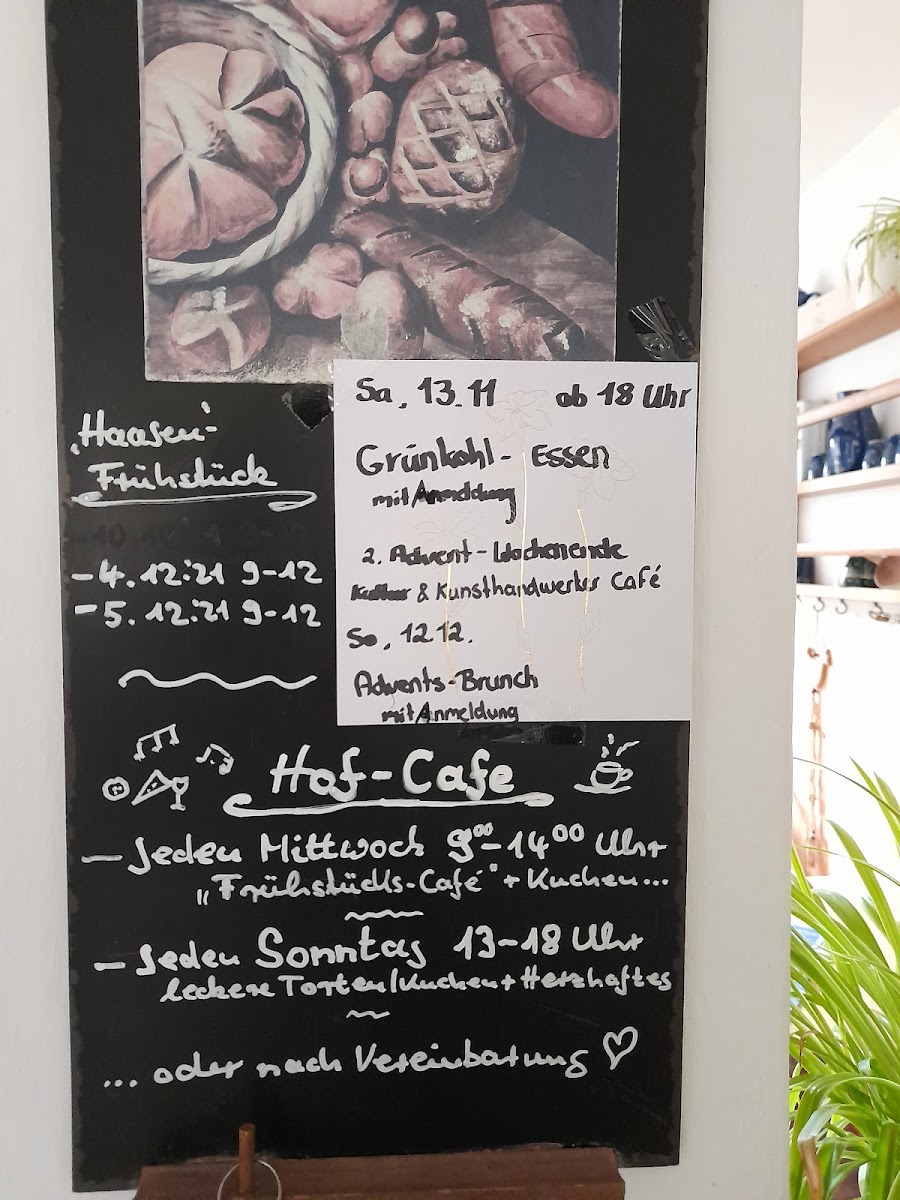 „Haasen"-
Frühstück
- 4.12.21 9-12
- 5.12.21 9-12
Sa, 13.11 ab 18 Uhr
Grünkohl- Essen
mit Anmeldung
2. Advent-Wochenende
& Kunsthandwerker Café
So, 12.12.
Advents-Brunch
mit Anmeldung
Hof-Cafe
- Jeden Mittwoch 9⁰⁰-14⁰⁰ Uhr
„Frühstücks-Café" + Kuchen...
- Jeden Sonntag 13-18 Uhr
leckere Torten/Kuchen + Herzhaftes
... oder nach Vereinbarung ♡